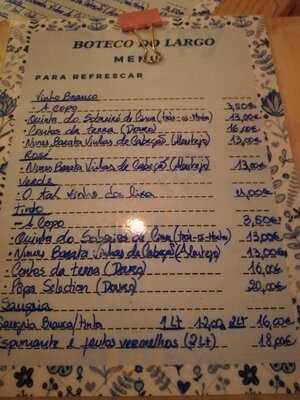 BOTECO DO LARGO
MENU
PARA REFRESCAR
Vinho Branco
- A Copo 3,50€
- Quinta do Sobreiró de Cima (Trás-os-Montes) 13,00€
- Contos da terra (Douro) 16,00€
- Nunes Barata Vinhas de Cabeção (Alentejo) 13,00€
Rosé
- Nunes Barata Vinhas de Cabeção (Alentejo) 13,00€
Verde
- O tal vinho da lixa 11,00€
Tinto
- A Copo 3,50€
- Quinta do Sobreiró de Cima (Trás-os-Montes) 13,00€
- Nunes Barata Vinhas de Cabeção (Alentejo) 13,00€
- Contos da terra (Douro) 16,00€
- Selection (Douro) 20,00€
Sangria
Sangria Branca/tinta 1Lt 12,00 2Lt 16,00€
Espumante e frutos vermelhos (2Lt) 18,00€